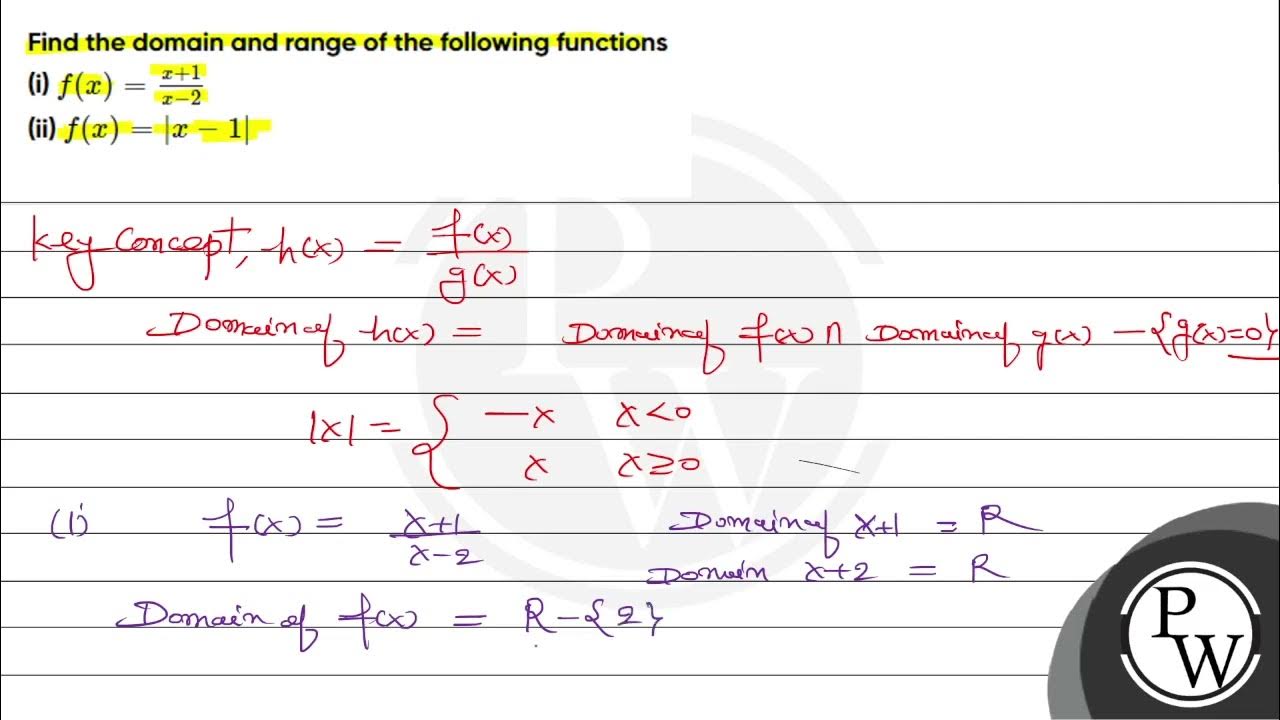 Find the domain and range of the following functions
(i) f(x) = \frac{x+1}{x-2}
(ii) f(x) = |x − 1|
Key Concept, h(x) = \frac{f(x)}{g(x)}
Domain of h(x) = Domain of f(x) ∩ Domain of g(x) − {g(x)=0}
|x| = { −x x<0
x x≥0
(i) f(x) = \frac{x+1}{x-2} Domain of x+1 = R
Domain x+2 = R
Domain of f(x) = R − {2}
P
W